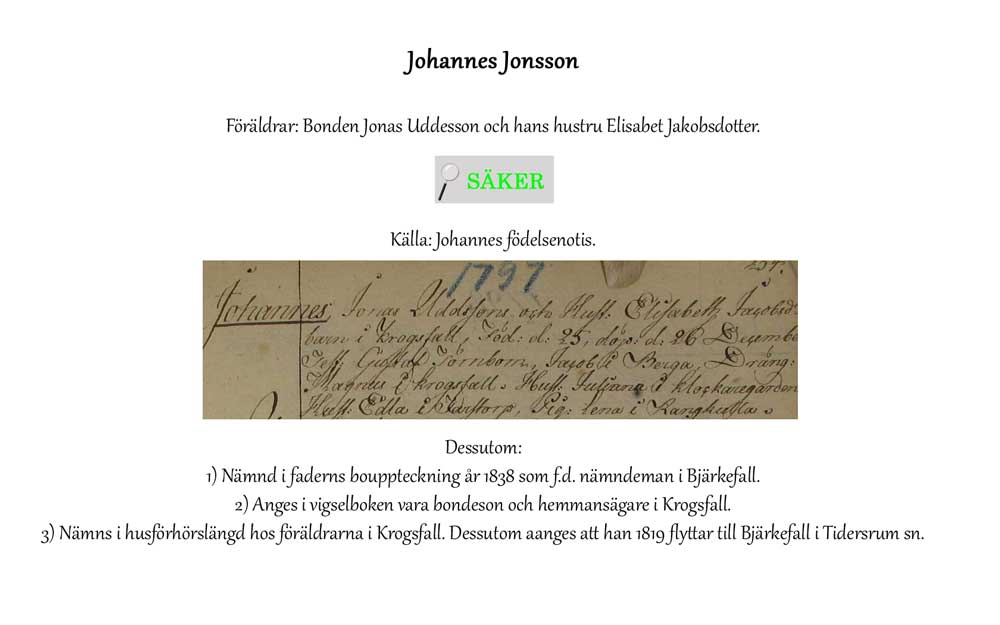 Johannes Jonsson
Föräldrar: Bonden Jonas Uddesson och hans hustru Elisabet Jakobsdotter.
SÄKER
Källa: Johannes födelsenotis.
1797
Johannes, Jonas Uddssons och Hust: Elisabeth Jacobsd:
barn i Krogsfall, Föd: d: 25, döp: d: 26 Decemb
Test: Gustaf Törnbom, Jacob i Berga, Dräng:
Magnus i Krogsfall. Hust: Juliana i klockaregården
Hust: Edla i Jarstorp, Pig: Lena i
Dessutom:
1) Nämnd i faderns bouppteckning år 1838 som f.d. nämndeman i Bjärkefall.
2) Anges i vigselboken vara bondeson och hemmansägare i Krogsfall.
3) Nämns i husförhörslängd hos föräldrarna i Krogsfall. Dessutom aanges att han 1819 flyttar till Bjärkefall i Tidersrum sn.